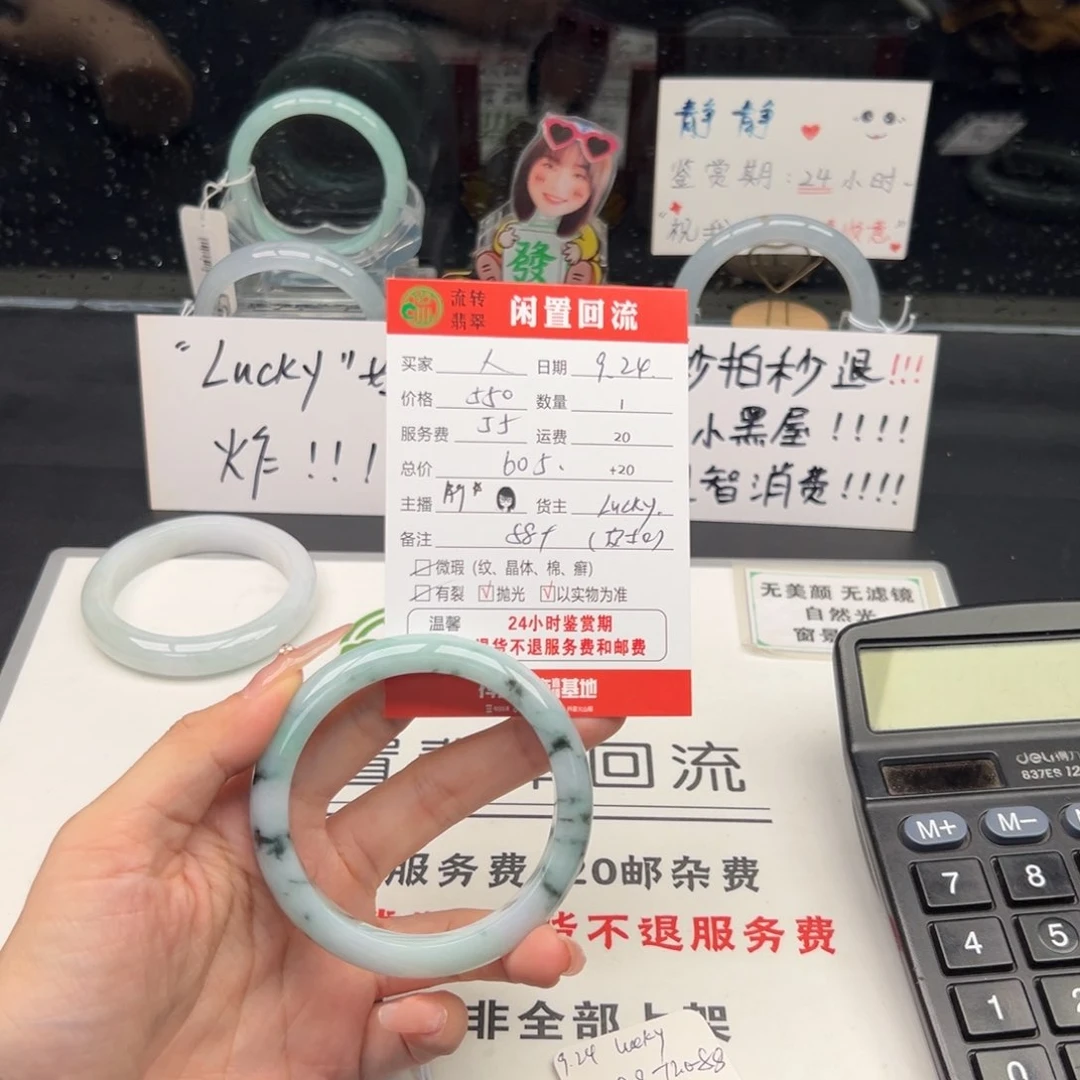 静静
鉴赏期:24小时.
"祝
發
"Lucky"
炸!!!
秒拍秒退!!!
小黑屋!!!!
智消费!!!!
流转
翡翠
闲置回流
买家 人 日期 9.24.
价格 550 数量 1
服务费 55 运费 20
总价 605. +20
主播 货主 Lucky.
备注 88
微瑕(纹、晶体、棉、癣)
有裂 √抛光 √以实物为准
温馨 24小时鉴赏期
退货不退服务费和邮费
基地
无美颜 无滤镜
自然光
窗景
回流
服务费 20邮杂费
货不退服务费
非全部上架
9.24 Lucky
72088
deli得力
837ES 12
M+ M-
7 8
4 5
1 2
0